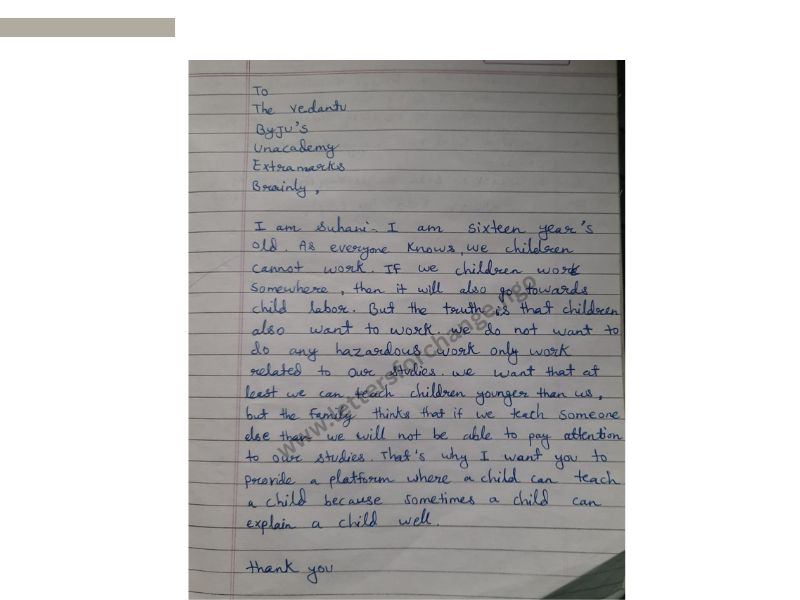 To
The vedantu
Byju's
Unacademy
Extramarks
Brainly,
I am Suhani. I am sixteen year's
old. As everyone knows, we children
cannot work. If we children work
somewhere, then it will also go towards
child labor. But the truth is that children
also want to work. we do not want to
do any hazardous work only work
related to our studies. we want that at
least we can teach children younger than us,
but the family thinks that if we teach someone
else than we will not be able to pay attention
to our studies. That's why I want you to
provide a platform where a child can teach
a child because sometimes a child can
explain a child well.
thank you
www.lettersforchange.ngo